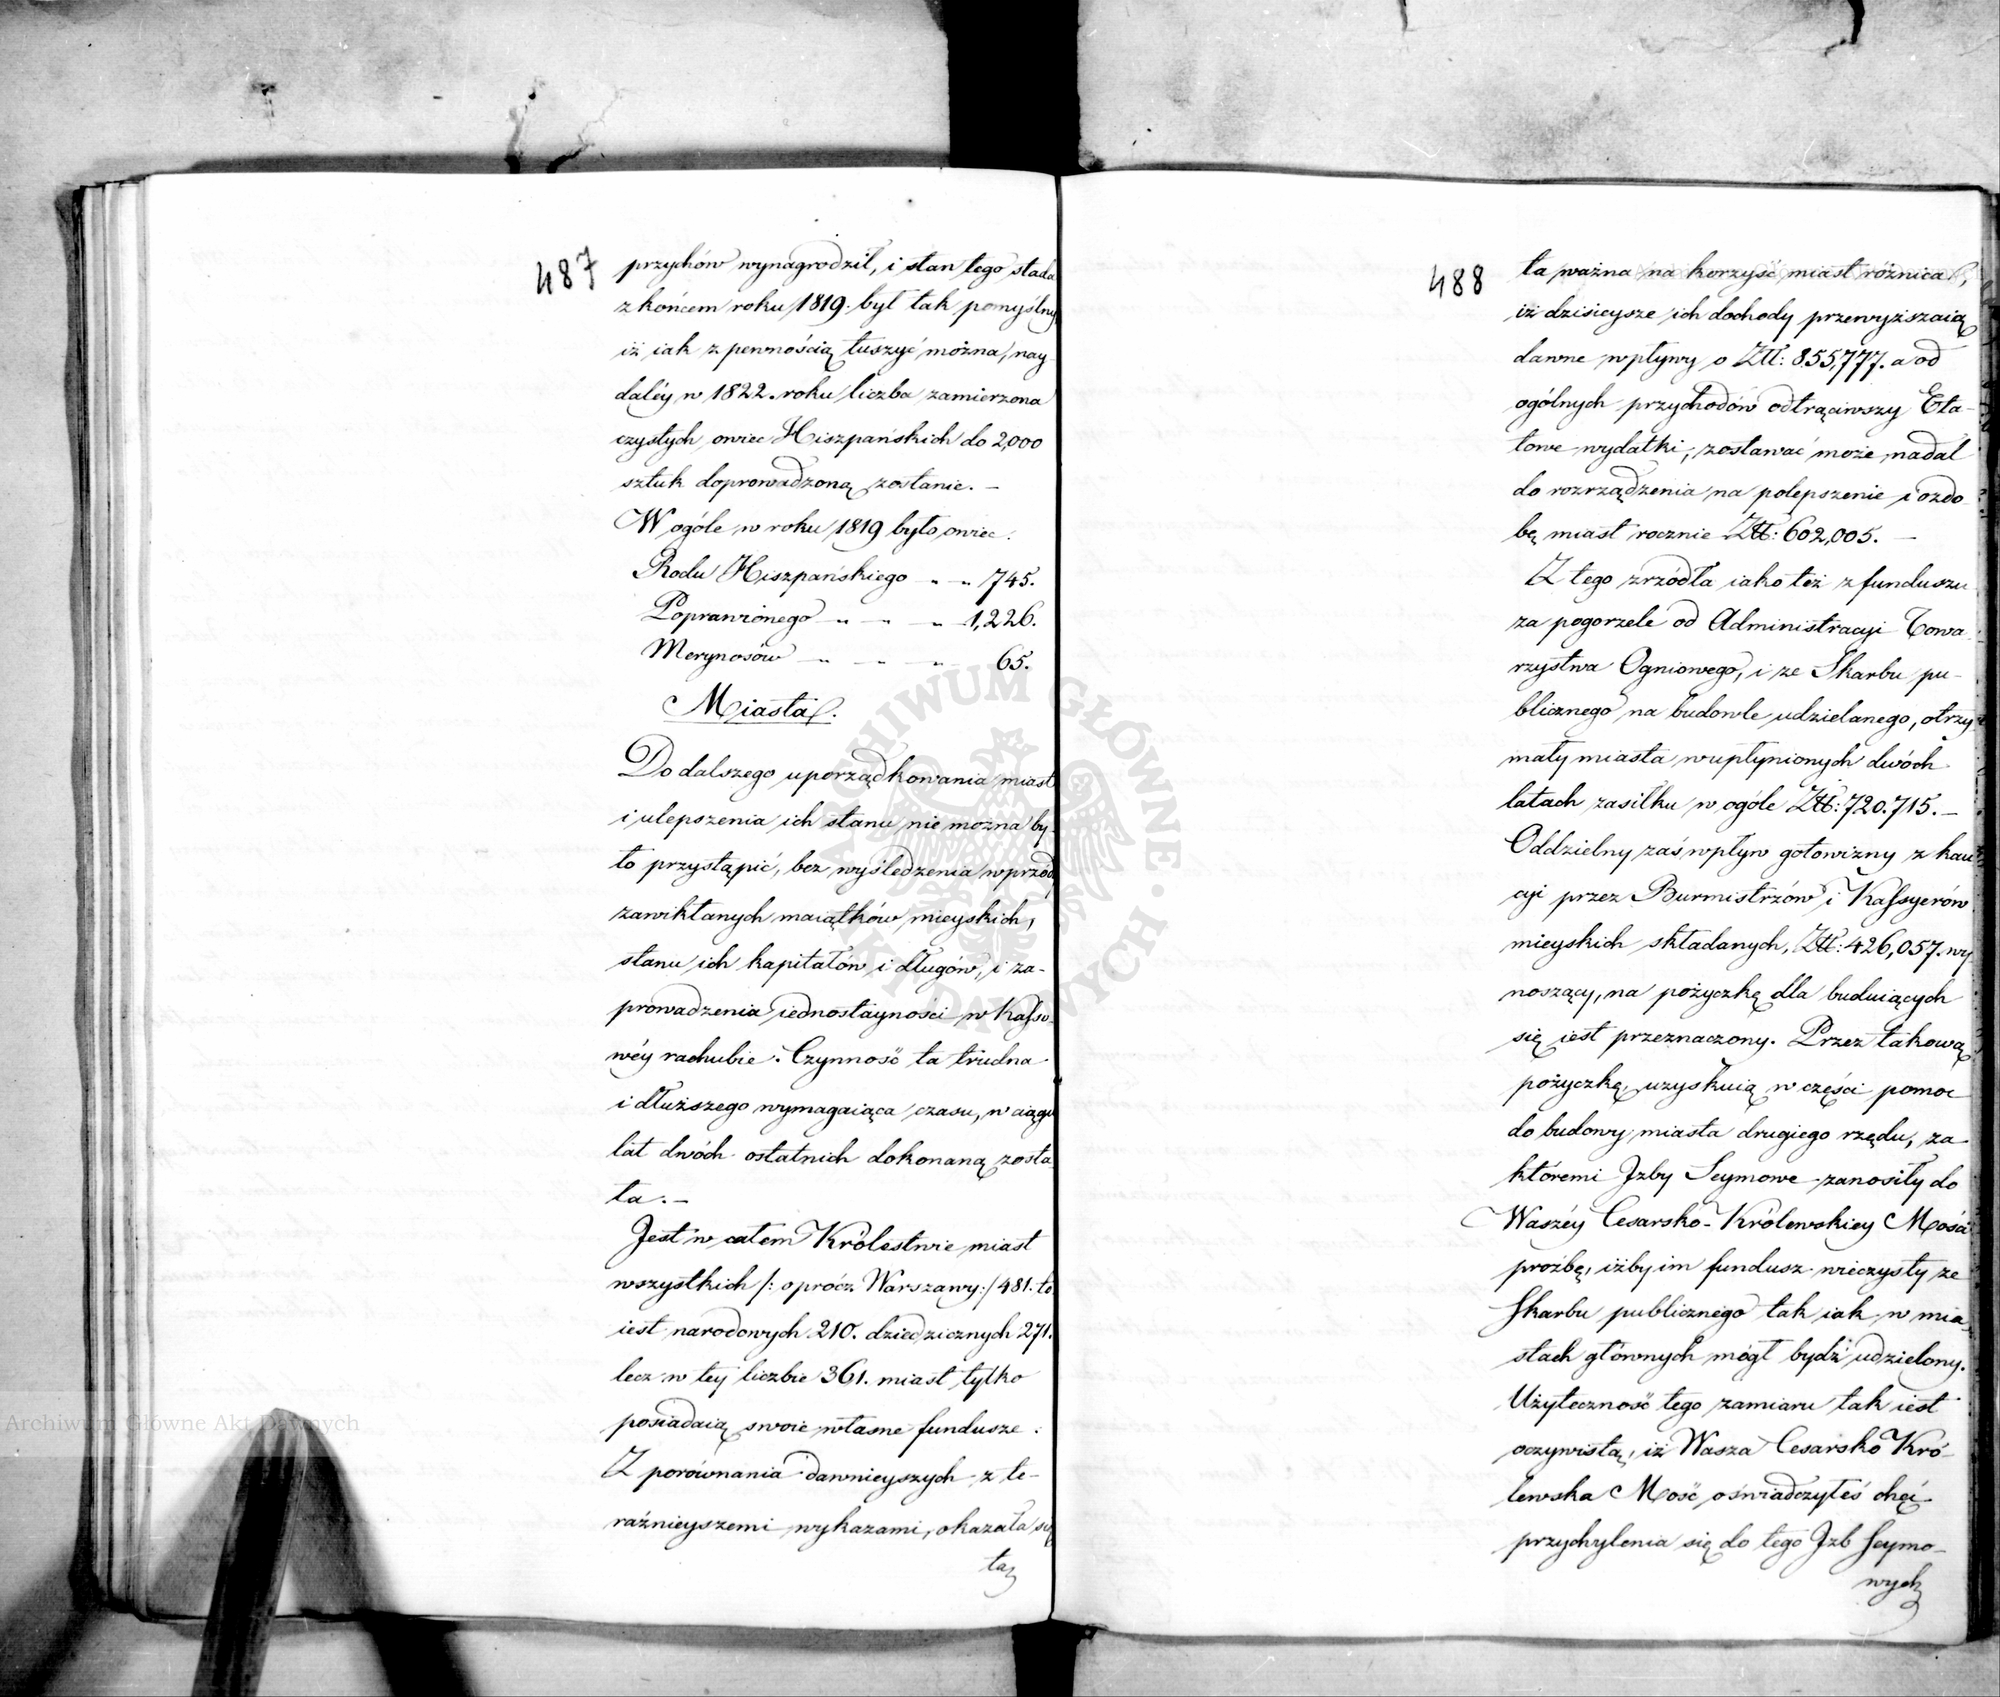 487
przychów wynagrodził, i stan tego stada
z końcem roku 1819. był tak pomyślny,
iż iak z pewnością tuszyć można, nay-
daléy w 1822. roku liczba zamierzona
czystych owiec Hiszpańskich do 2,000
sztuk doprowadzoną zostanie. —
W ogóle w roku 1819 było owiec:
Rodu Hiszpańskiego - - 745.
Poprawionego - - - 1,226.
Merynosów - - - 65.
Miasta.
Do dalszego uporządkowania miast
i ulepszenia ich stanu nie można by-
ło przystąpić, bez wyśledzenia wprzód
zawikłanych maiątków mieyskich,
stanu ich kapitałów i długów, i za-
prowadzenia iednostayności w Kasso-
wéy rachubie. Czynność ta trudna
i dłuższego wymagaiąca czasu, w ciągu
lat dwóch ostatnich dokonaną zosta-
ła. —
Jest w całem Królestwie miast
wszystkich /: oprócz Warszawy :/ 481. to
iest narodowych 210. dziedzicznych 271.
lecz w tey liczbie 361. miast tylko
posiadaią swoie własne fundusze.
Z porównania dawnieyszych z te-
raźnieyszemi wykazami, okazała się
ta
488
ta ważna na korzyść miast różnica,
iż dzisieysze ich dochody przewyższaią
dawne wpływy o Złł: 855,777. a od
ogólnych przychodów odtrąciwszy Eta-
towe wydatki, zostawać może nadal
do rozrządzenia na polepszenie i ozdo-
bę miast rocznie Złł: 602,005. —
Z tego zrzódła iako też z funduszu
za pogorzele od Administracyi Towa-
rzystwa Ogniowego, i ze Skarbu pu-
blicznego na budowle udzielanego, otrzy-
mały miasta w upłynionych dwóch
latach zasiłku w ogóle Złł: 720.715. —
Oddzielny zaś wpływ gotowizny z kau-
cyi przez Burmistrzów i Kassyerów
mieyskich składanych, Złł: 426,057. wy-
noszący, na pożyczkę dla buduiących
się iest przeznaczony. Przez takową
pożyczkę, uzyskuią w części pomoc
do budowy miasta drugiego rzędu, za
któremi Jzby Seymowe zanosiły do
Waszéy Cesarsko-Królewskiey Mości
proźbę, iżby im fundusz wieczysty ze
Skarbu publicznego tak iak w mia-
stach głównych mógł bydź udzielony.
Użyteczność tego zamiaru tak iest
oczywistą, iż Wasza Cesarsko Kró-
lewska Mość oświadczyłeś chęć
przychylenia się do tego Jzb Seymo-
wych
ARCHIWUM GŁÓWNE AKT DAWNYCH
Archiwum Główne Akt Dawnych